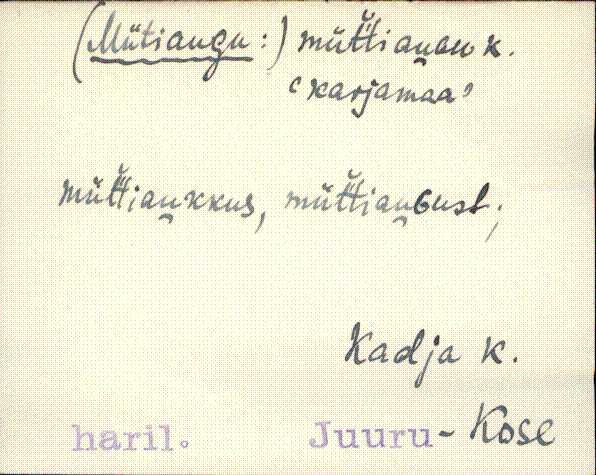 (Mütiaugu:) müt̆tiau̯ɢu k.
‹karjamaa›
müt̆tiau̯kkus, müt̆tiau̯ɢust;
Kadja k.
haril. Juuru-Kose